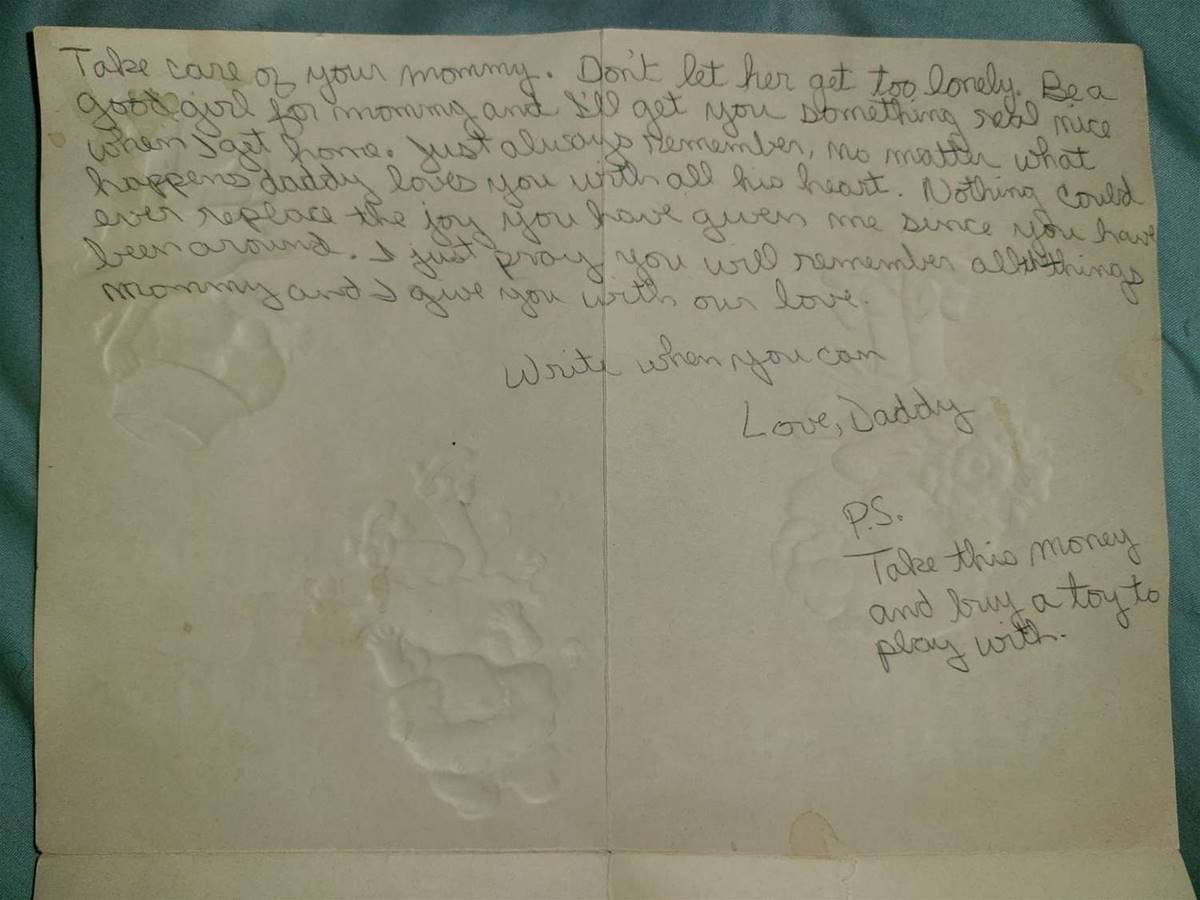 Take care of your mommy. Don't let her get too lonely. Be a
good girl for mommy and I'll get you something real nice
when I get home. Just always remember, no matter what
happens daddy loves you with all his heart. Nothing could
ever replace the joy you have given me since you have
been around. I just pray you will remember all things
mommy and I give you with our love.
Write when you can
Love, Daddy
P.S.
Take this money
and buy a toy to
play with.